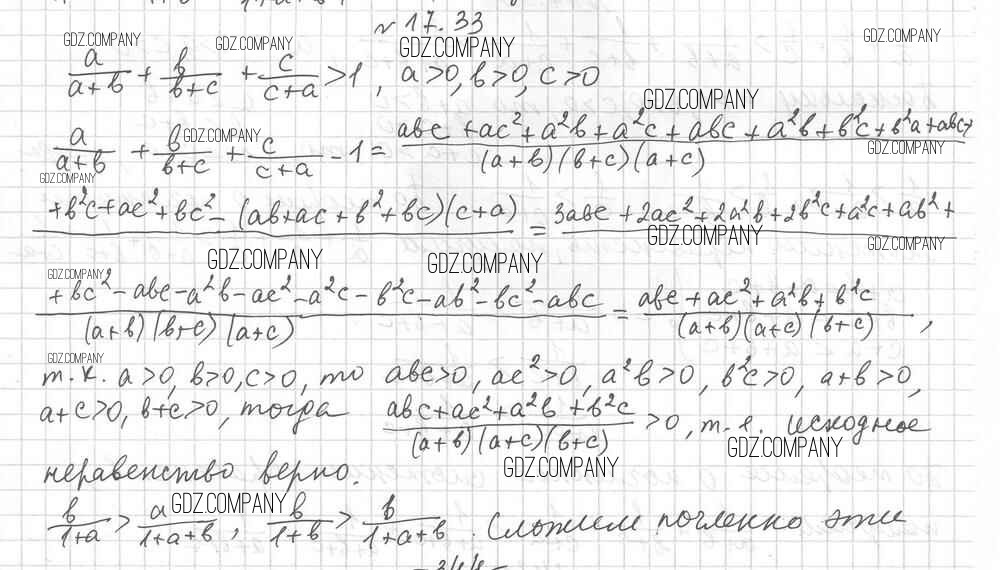 № 17.33
GDZ.COMPANY GDZ.COMPANY GDZ.COMPANY GDZ.COMPANY
a/(a+b) + b/(b+c) + c/(c+a) > 1, a>0, b>0, c>0
GDZ.COMPANY
a/(a+b) + b/(b+c) + c/(c+a) - 1 = (abc + ac² + a²b + a²c + abc + a²b + b²c + b²a + abc +)/((a+b)(b+c)(a+c))
GDZ.COMPANY GDZ.COMPANY
GDZ.COMPANY
+ b²c + ac² + bc² - (ab + ac + b² + bc)(c+a) = 3abc + 2ac² + 2a²b + 2b²c + a²c + ab² +
GDZ.COMPANY GDZ.COMPANY
GDZ.COMPANY GDZ.COMPANY
GDZ.COMPANY
+ bc² - abc - a²b - ac² - a²c - b²c - ab² - bc² - abc/((a+b)(b+c)(a+c)) = (abc + ac² + a²b + b²c)/((a+b)(a+c)(b+c)),
GDZ.COMPANY
т.к. a>0, b>0, c>0, то abc>0, ac²>0, a²b>0, b²c>0, a+b>0,
a+c>0, b+c>0, тогда (abc+ac²+a²b+b²c)/((a+b)(a+c)(b+c)) > 0, т.е. исходное
GDZ.COMPANY GDZ.COMPANY
неравенство верно.
GDZ.COMPANY
b/(1+a) > a/(1+a+b), b/(1+b) > b/(1+a+b). Сложим почленно эти
-344-